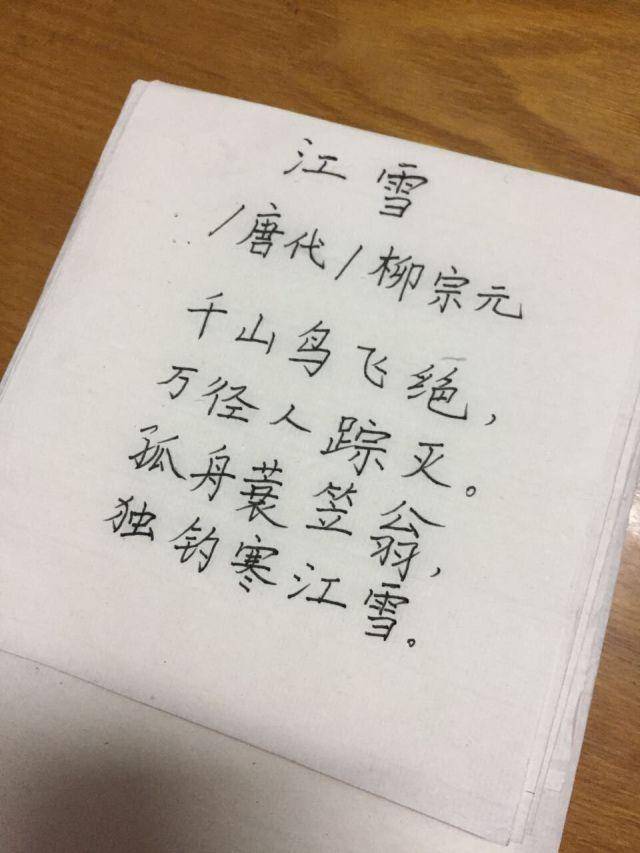 江雪
/唐代/柳宗元
千山鸟飞绝，
万径人踪灭。
孤舟蓑笠翁，
独钓寒江雪。